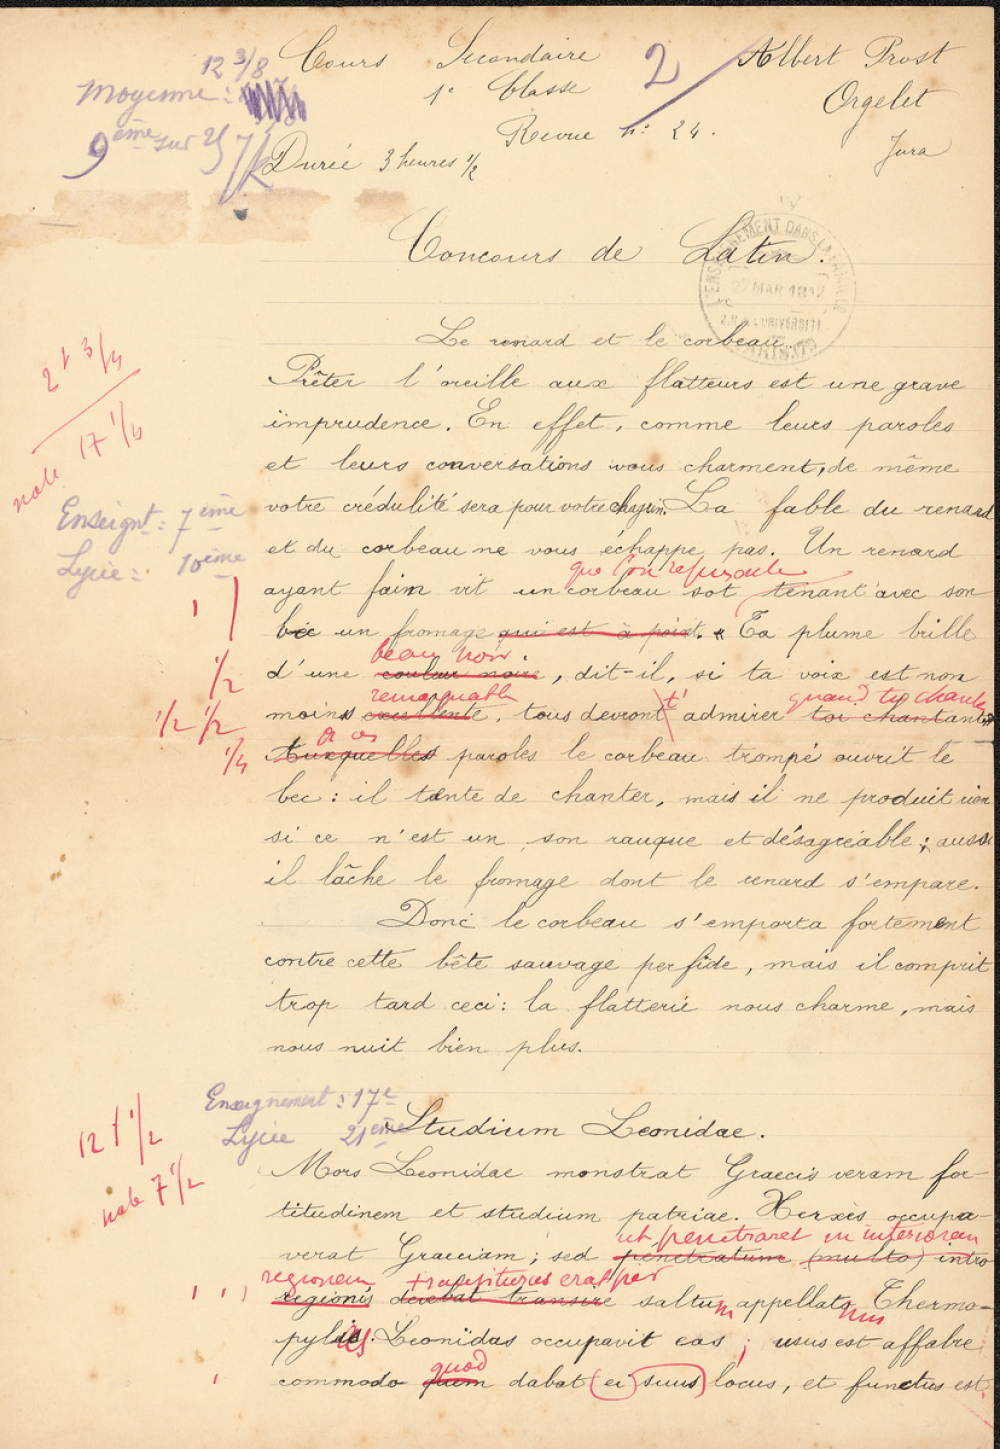 12 3/8 Cours Secondaire 2 Albert Prost
Moyenne : 1e Classe Orgelet
9ème sur 25 Revue n° 24. Jura
Durée 3 heures 1/2
Concours de Latin.
MAR
Le renard et le corbeau.
2 + 3/4
Prêter l'oreille aux flatteurs est une grave
imprudence. En effet, comme leurs paroles
note 17 1/4
et leurs conversations vous charment, de même
votre crédulité sera pour votre chagrin. La fable du renard
Enseignt : 7ème
et du corbeau ne vous échappe pas. Un renard
Lycée : 10ème
que l'on
ayant faim vit un corbeau sot tenant avec son
1
bec un fromage qui est à point. « Ta plume brille
beau noir
1/2 d'une couleur noire, dit-il, si ta voix est non
remarquable t' quand tu chantes
1/2 1/2 moins excellente, tous devront admirer toi chantant »
à ces
1/4 Auxquelles paroles le corbeau trompé ouvrit le
bec : il tente de chanter, mais il ne produit rien
si ce n'est un son rauque et désagréable ; aussi
il lâche le fromage dont le renard s'empare.
Donc le corbeau s'emporta fortement
contre cette bête sauvage perfide, mais il comprit
trop tard ceci : la flatterie nous charme, mais
nous nuit bien plus.
Enseignement : 17e
Lycée 21ème Studium Leonidae.
12 + 1/2
Mors Leonidae monstrat Graecis veram for-
note 7 1/2
titudinem et studium patriae. Xerxès occupa-
ut penetraret in interiorem
verat Graeciam ; sed penetratum (multo) intro
regionem transiturus erat per
1 1 1 regionis debebat transire saltum appellatum Thermo-
pylas. Leonïdas occupavit eas ; usus est affabre
quod
1 commodo quem dabat (ei suus) locus, et functus est